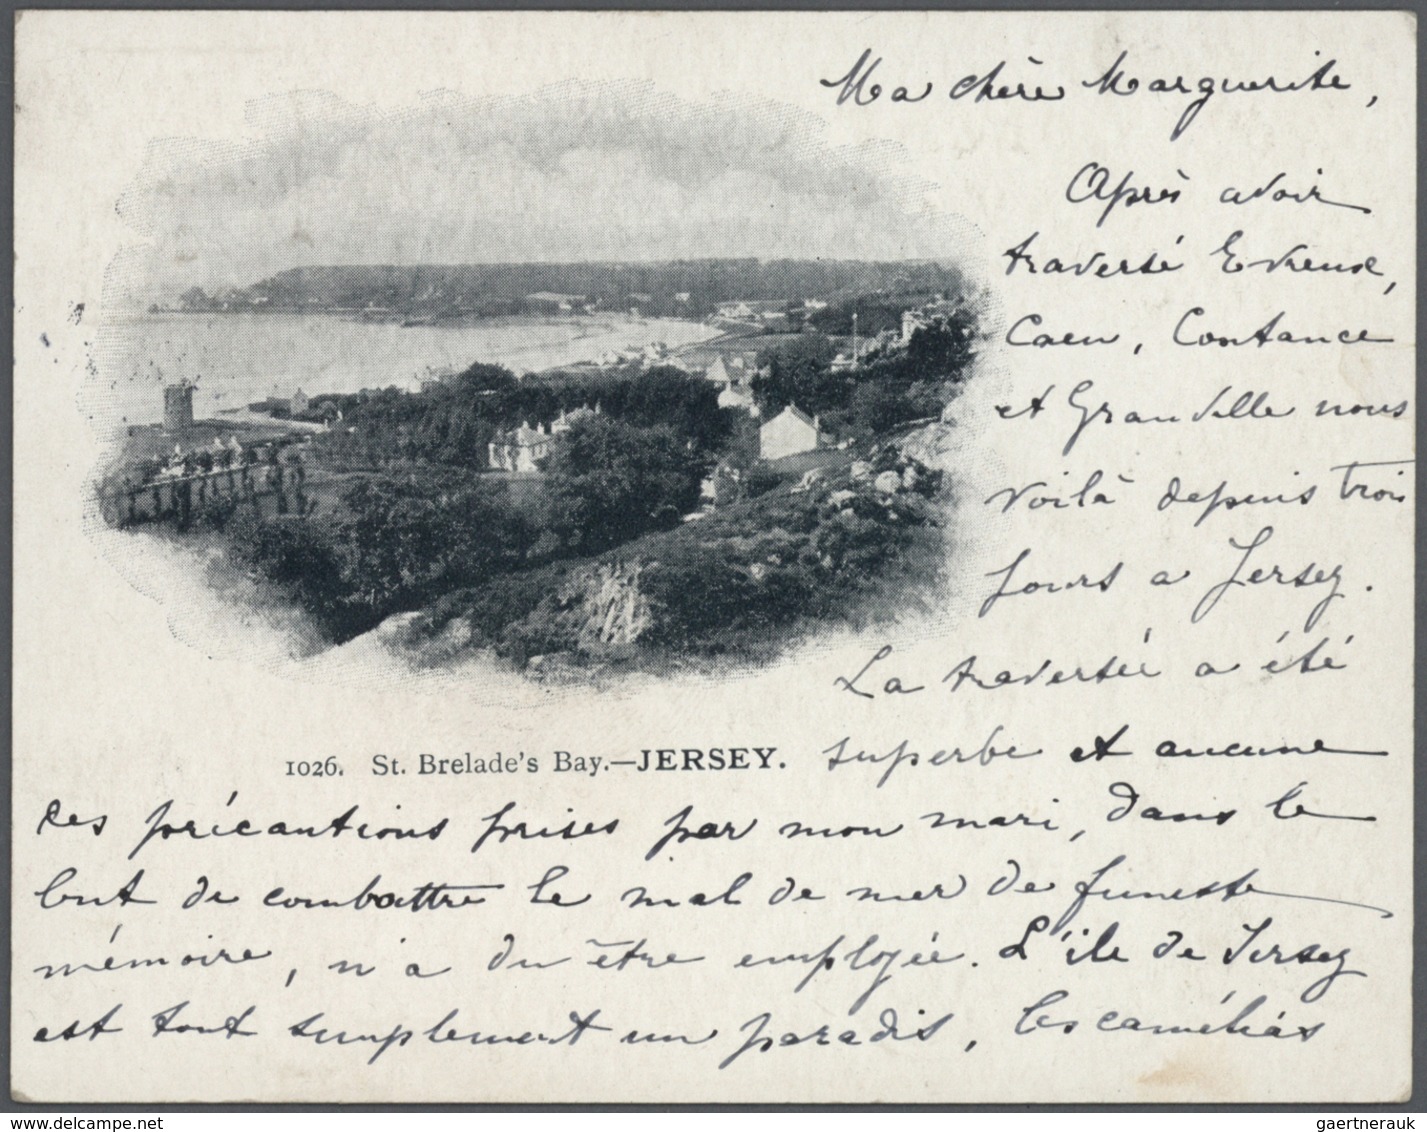 Ma chère Marguerite,
Après avoir
traversé Evreux,
Caen, Coutance
et Granville nous
voilà depuis trois
jours a Jersey.
La traversée a été
1026. St. Brelade's Bay.—JERSEY.
superbe et aucune
des précautions prises par mon mari, dans le
but de combattre le mal de mer de funeste
mémoire, n'a du être employée. L'ile de Jersey
est tout simplement un paradis, les camélias
www.delcampe.net
gaertnerauk